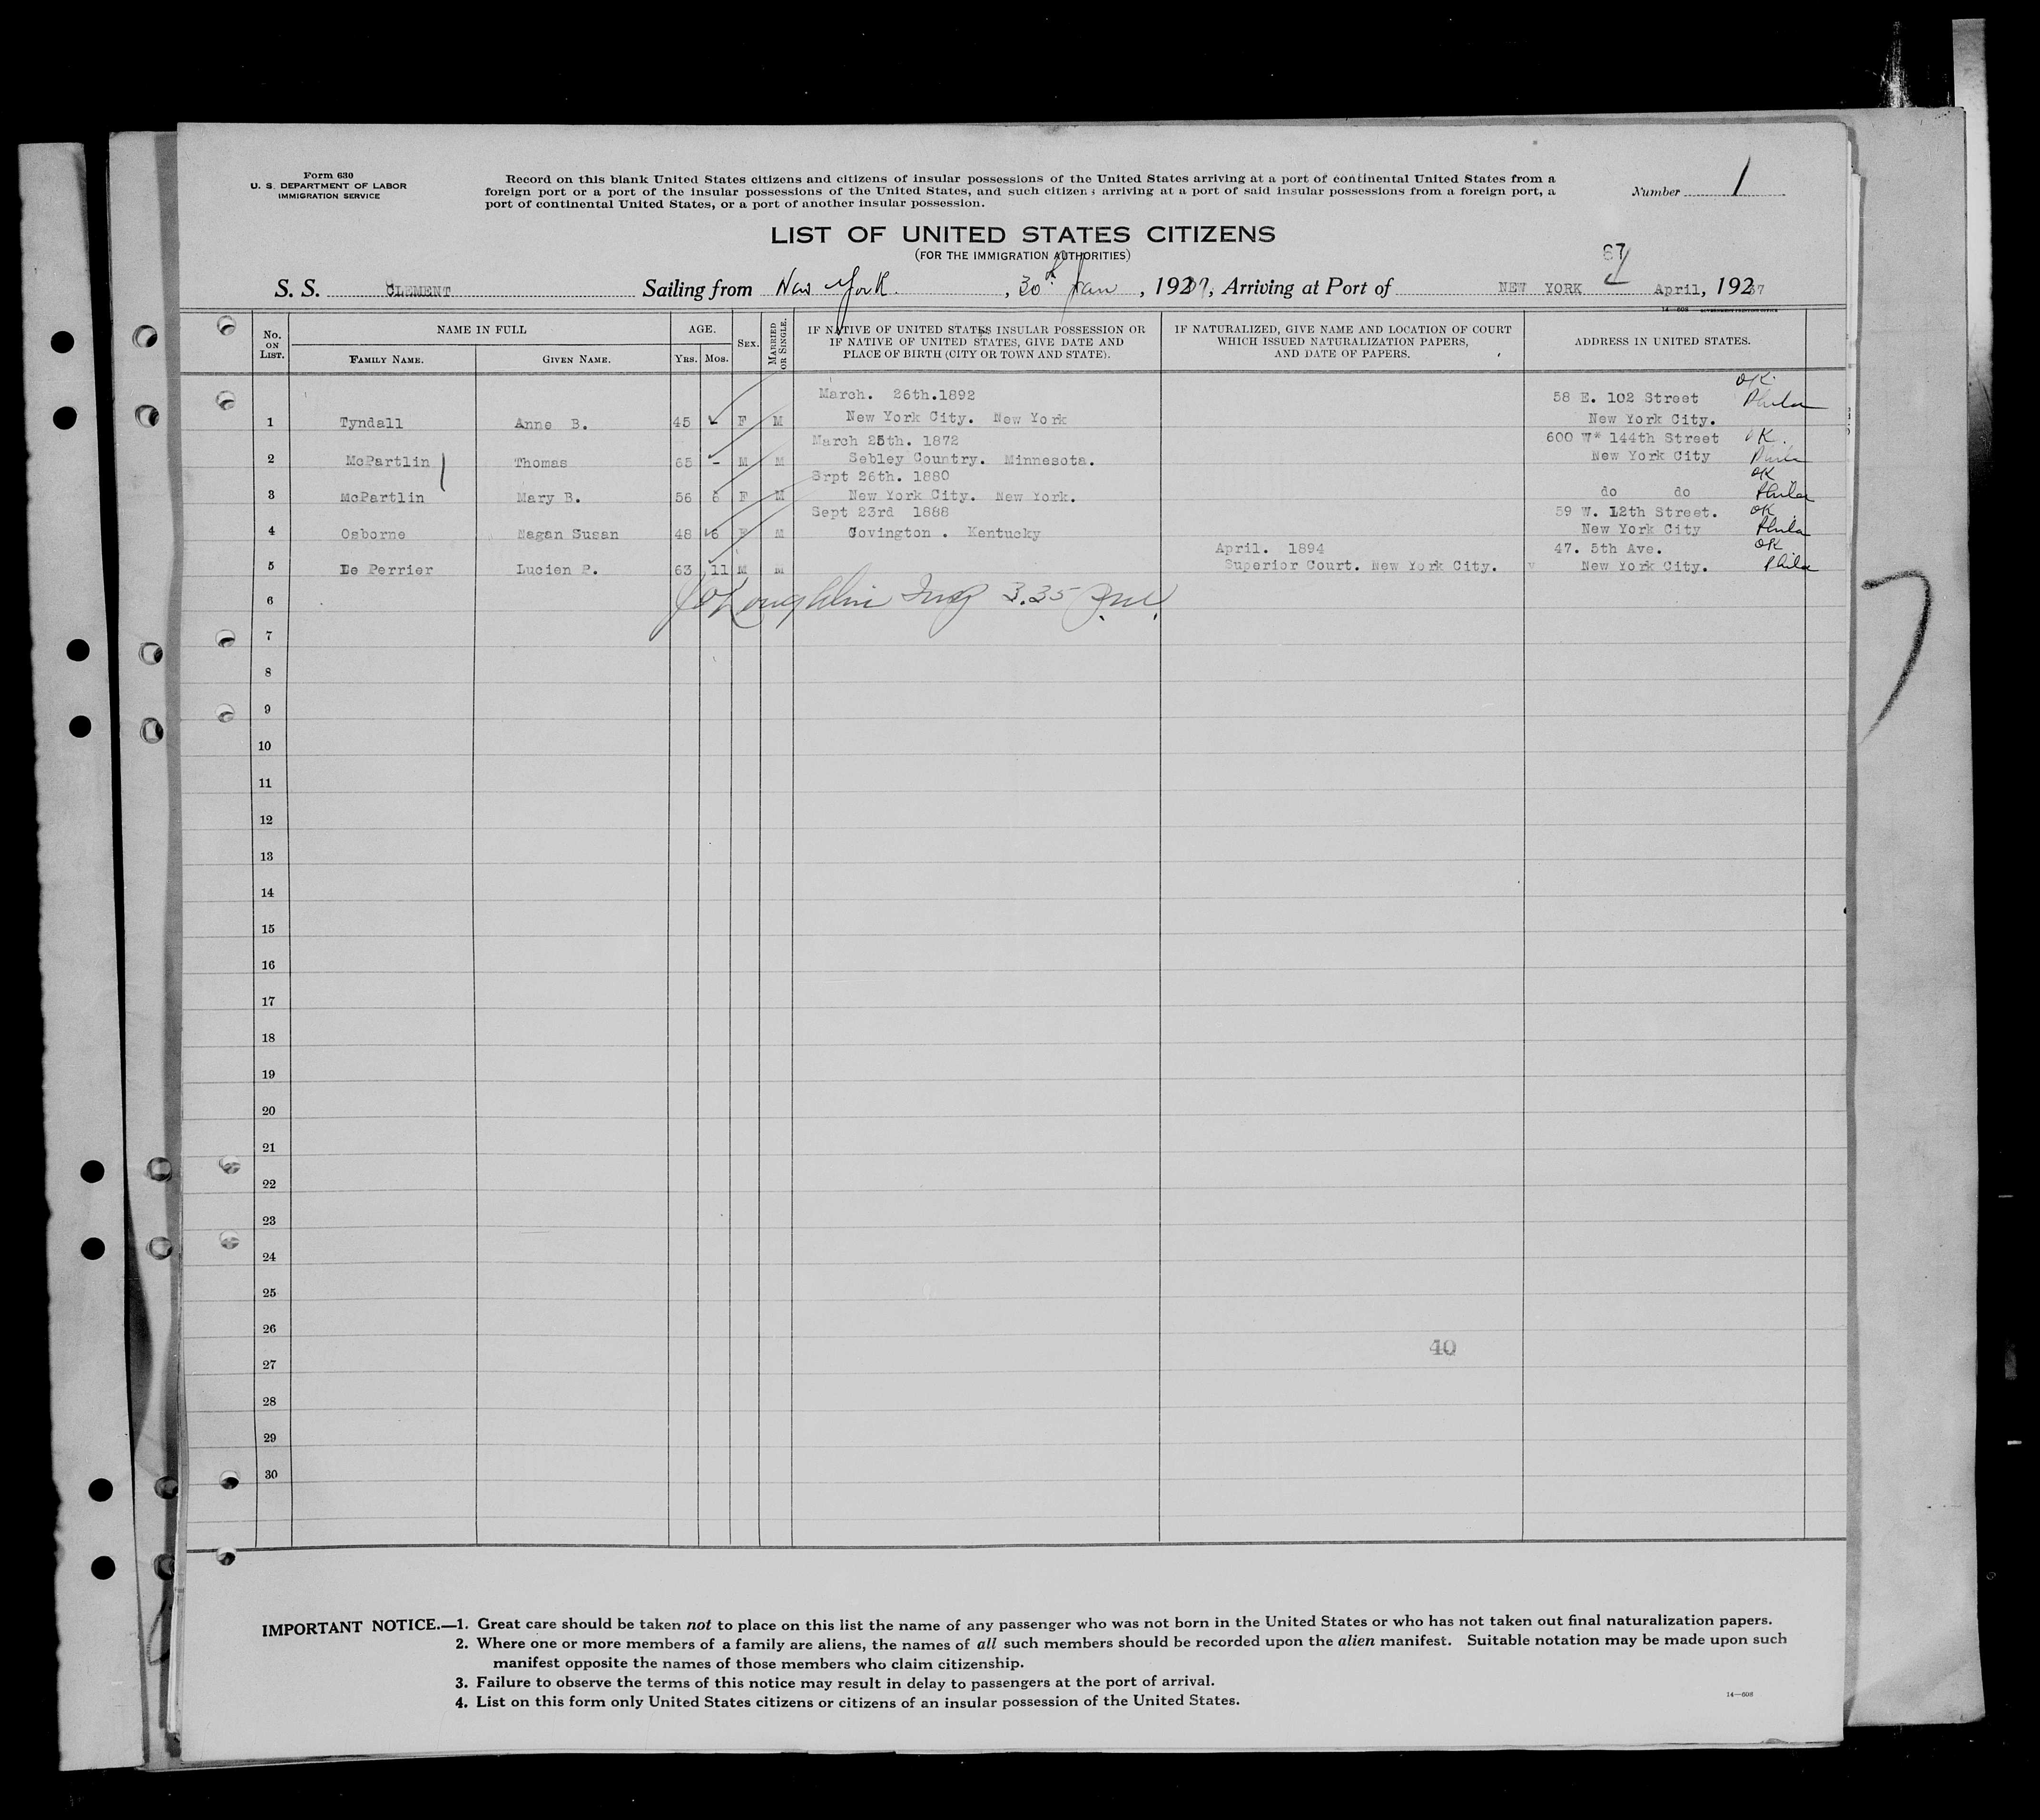 Form 630
U. S. DEPARTMENT OF LABOR
IMMIGRATION SERVICE
Record on this blank United States citizens and citizens of insular possessions of the United States arriving at a port of continental United States from a
foreign port or a port of the insular possessions of the United States, and such citizens arriving at a port of said insular possessions from a foreign port, a
port of continental United States, or a port of another insular possession.
Number 1
LIST OF UNITED STATES CITIZENS
(FOR THE IMMIGRATION AUTHORITIES)
67
S. S. CLEMENT Sailing from New York, 30th Jan, 1937, Arriving at Port of NEW YORK 1 April, 1937
No. ON LIST.
NAME IN FULL
FAMILY NAME.
GIVEN NAME.
AGE.
YRS. MOS.
SEX.
MARRIED OR SINGLE.
IF NATIVE OF UNITED STATES INSULAR POSSESSION OR
IF NATIVE OF UNITED STATES, GIVE DATE AND
PLACE OF BIRTH (CITY OR TOWN AND STATE).
IF NATURALIZED, GIVE NAME AND LOCATION OF COURT
WHICH ISSUED NATURALIZATION PAPERS,
AND DATE OF PAPERS.
ADDRESS IN UNITED STATES.
March. 26th.1892 58 E. 102 Street OK
1 Tyndall Anne B. 45 F M New York City. New York New York City. Phila
March 25th. 1872 600 W* 144th Street OK.
2 McPartlin Thomas 65 - M M Sebley Country. Minnesota. New York City Phila
Srpt 26th. 1880 OK
3 McPartlin Mary B. 56 6 F M New York City. New York. do do Phila
Sept 23rd 1888 59 W. 12th Street. OK
4 Osborne Nagan Susan 48 6 F M Covington . Kentucky New York City Phila
April. 1894 47. 5th Ave. OK
5 De Perrier Lucien P. 63 11 M M Superior Court. New York City. v New York City. Phila
6 3.35 P.M.
7
8
9
10
11
12
13
14
15
16
17
18
19
20
21
22
23
24
25
26
40
27
28
29
30
IMPORTANT NOTICE.—1. Great care should be taken not to place on this list the name of any passenger who was not born in the United States or who has not taken out final naturalization papers.
2. Where one or more members of a family are aliens, the names of all such members should be recorded upon the alien manifest. Suitable notation may be made upon such
manifest opposite the names of those members who claim citizenship.
3. Failure to observe the terms of this notice may result in delay to passengers at the port of arrival.
4. List on this form only United States citizens or citizens of an insular possession of the United States.
14—608